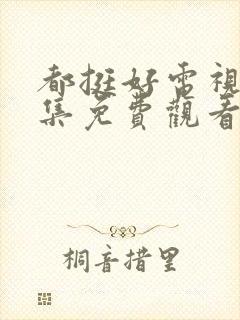 都挺好電視
集免費觀看
桐音措里